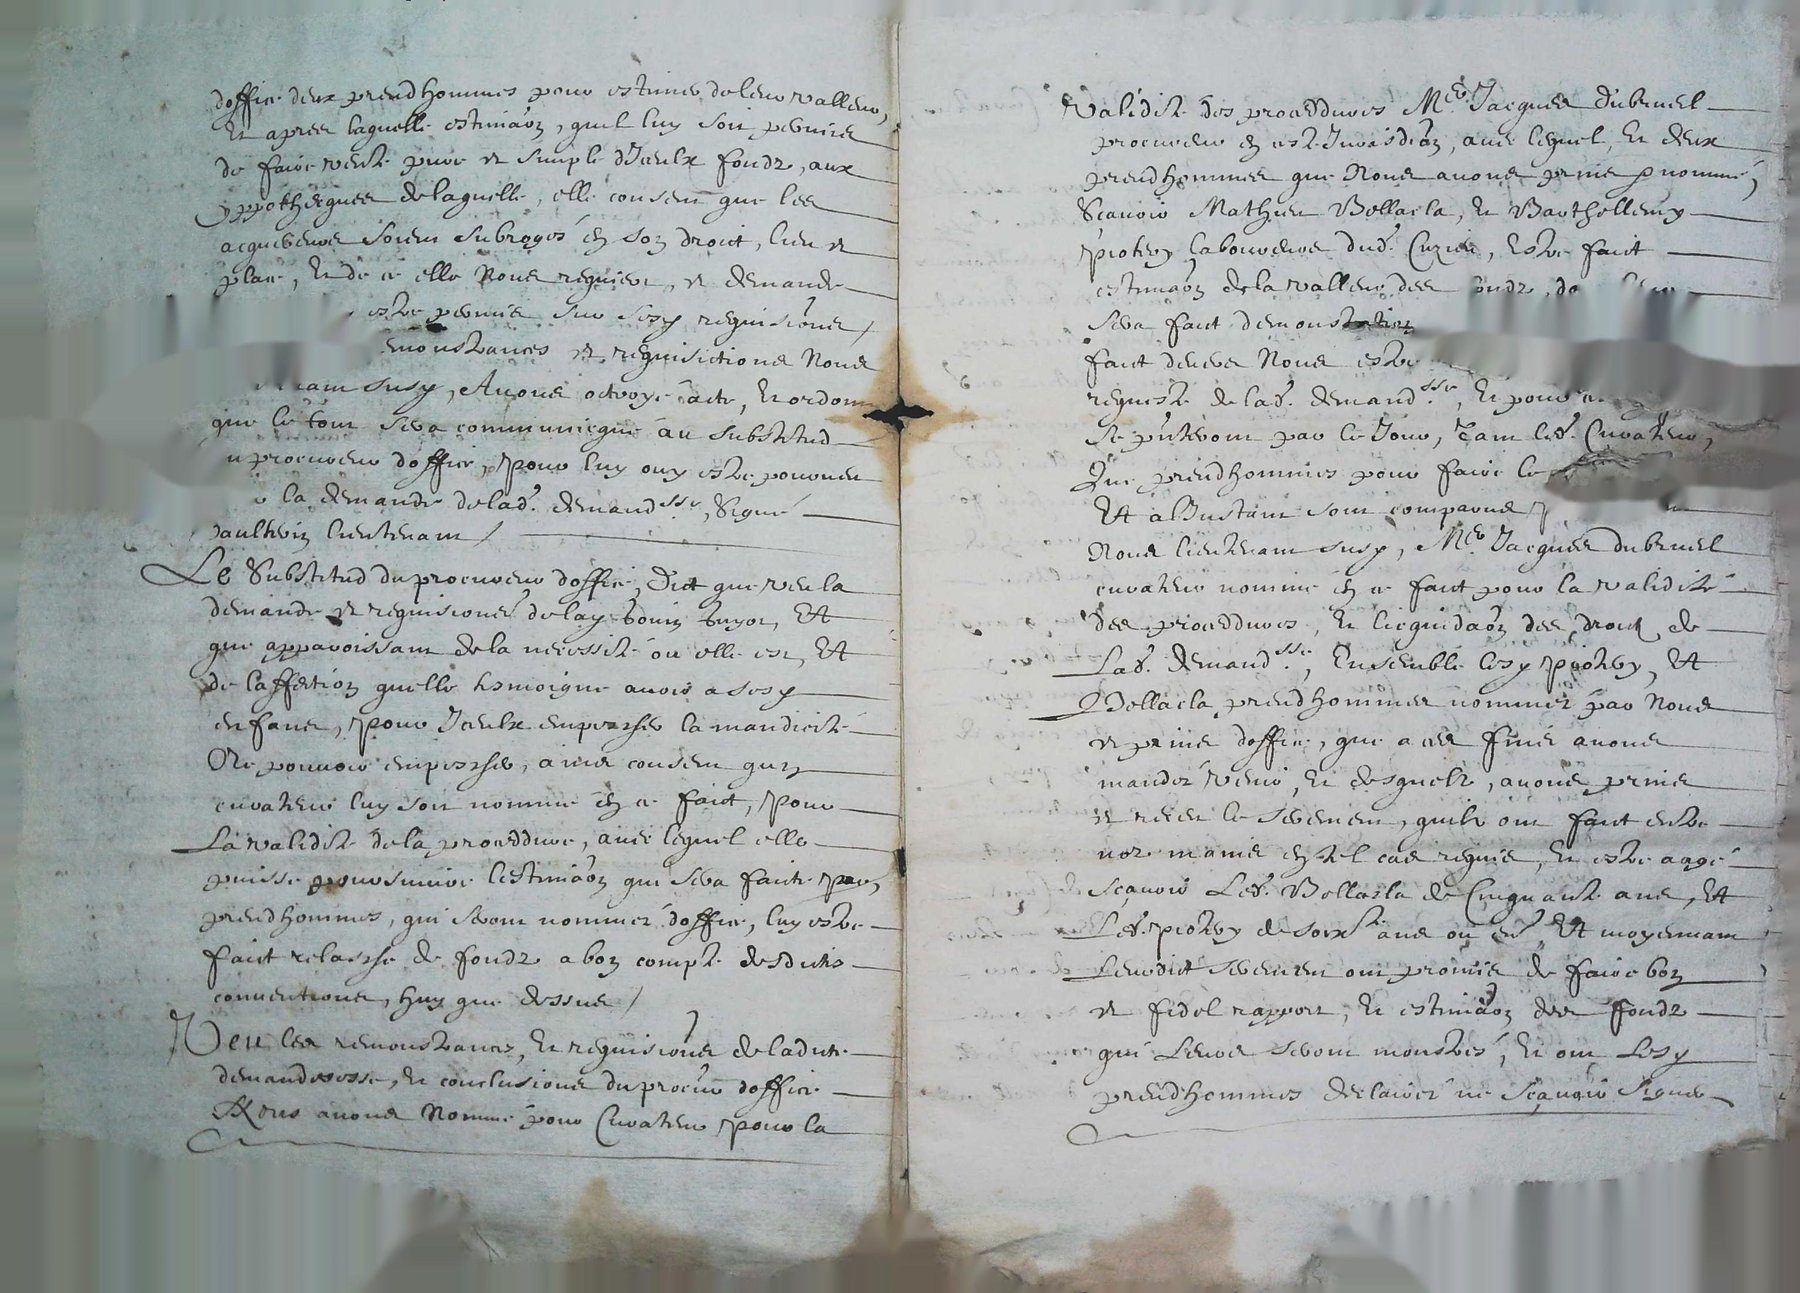 doffice deux preud hommes pour estimer de leur valleur,
Et apres laquelle estimaôn, quil luy soit permire
de faire vente pure et simple dIceulx fondz, aux
yppothecques de laquelle, elle consent que les
acquereurs soient subrogés en son droict, lieu et
place, Et de ce elle Nous requiert, et demande
estre permis sur sesd requisiôns /
remonstrances et requisictions Nous
susd, Avons octroyé acte, Et ordonn
que le tout sera communicqué au substitud
procureur doffice, pour luy ouy estre pourveu
la demande de lad. demandsse, Signé
Gaultier lieutenant /
Le Substitud du procureur doffice, Dict que veu la
demande et requisiones de lad , Et
que apparoissant de la necessité ou elle est, Et
de laffection quelle tesmoigne avoir a sesd
enfans, pour Iceulx empescher la mandicité
Ne pouvoir empescher, ains consent quun
curateur luy soit nommé en ce faict, pour
La validité de la proceddure, avec lequel elle
puisse poursuivre lestimaôn qui sera faicte par,
preudhommes, qui seront nommés doffice, luy estre
faict relasche de fondz a bon compte desdictes
conventions, huy que dessus /
Veu les remonstrances, Et requisiôns de ladicte
demanderesse, Et conclusions du procur doffice
Nous avons Nommé pour Curateur pour la
validité des proceddures Mre Jacques Dubruel
procureur en ceste Jurisdiôn, avec lequel, Et deux
preudhommes que Nous avons prins & nommé,
Scavoir Mathieu Bellacla, Et Barthellemy
Piotey laboureurs dud. , Estre faict
estimaôn de la valleur des fondz,
sera faict demonstration
faict devers Nous estre
requeste de lad. demandsse, Et pour
se pnteront par ce Jour, Tant led. Curateur,
Que preudhommes pour faire le
Et a linstant sont comparus
Nous lieutenant susd, Mre Jacques dubruel
curateur nommé en ce faict pour la validité
des proceddures, Et licquidaôn des droictz de
Lad. demandsse, Ensemble lesd Piotey, Et
Bellacla preudhommes nommez par Nous
et prins doffice, que a ces fins avons
mandez venir, Et desquelz, avons prins
et receu le serement, quilz ont faict entre
noz mains en tel cas requis, Et estre aagé
scavoir Led. Bellacla de Cinquante ans, Et
Led. Piotey de soixte ans ou en, Et moyennant
Leurdict serement ont promis de faire bon
et fidel rapport, Et estimaôn des fondz
qui Leurs seront monstrés, Et ont Lesd
preudhommes declairez ne scavoir signer